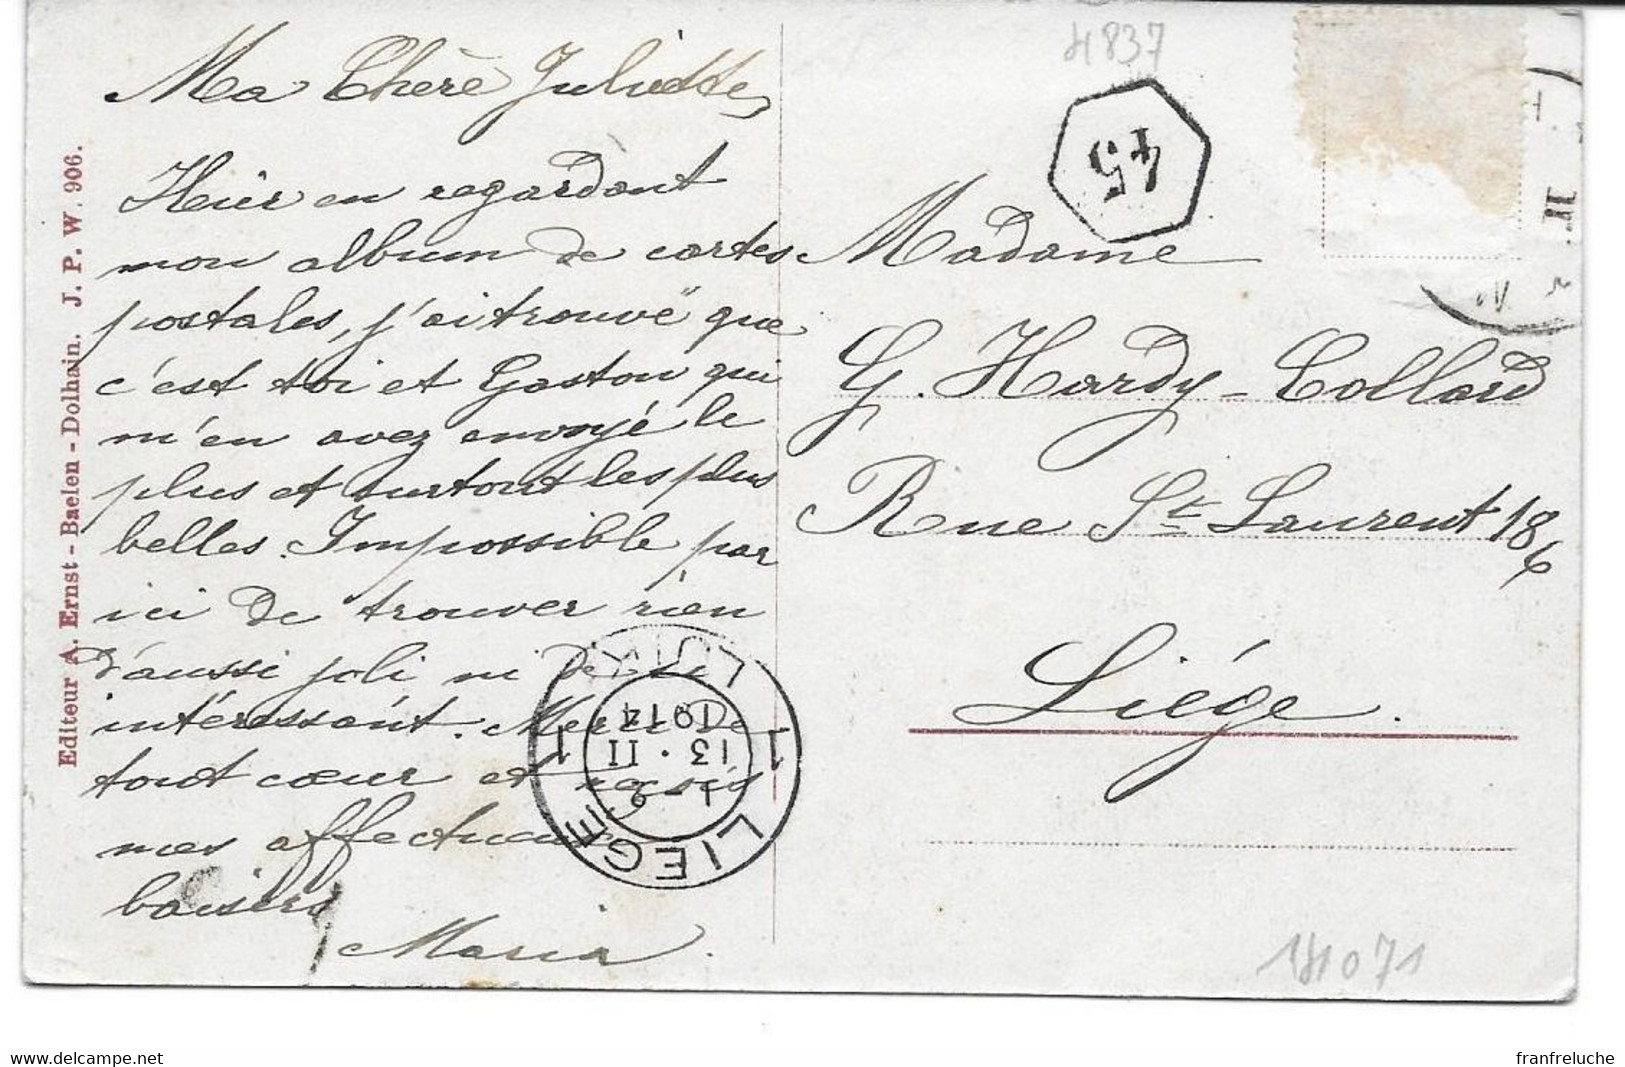 Ma Chère Juliette,
Hier en regardant
mon album de cartes
postales, j'ai trouvé que
c'est toi et Gaston qui
m'en avez envoyé le
plus et surtout les plus
belles. Impossible par
ici de trouver rien
d'aussi joli ni de si
intéressant. Merci de
tout cœur et reçois
mes affectueux
baisers
Maria.
Editeur A. Ernst - Baelen - Dolhain. J. P. W. 906.
4837
45
Madame
G. Hardy-Collard
Rue St Laurent 186
Liége.
LIEGE
1 1
13 · II
1914
LUIK
II
14071
delcampe.net
franfreluche